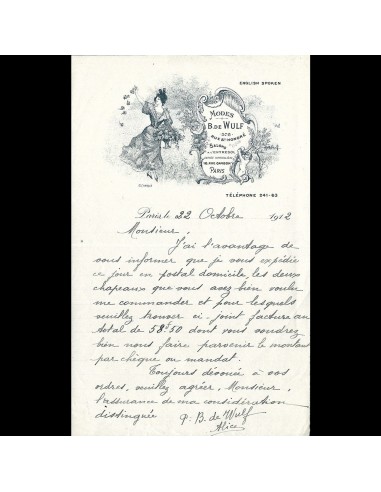 ENGLISH SPOKEN
MODES
B. DE WULF
RUE ST HONORÉ
SALONS
À L'ENTRESOL
PARIS
TÉLÉPHONE 241-63
Paris le 22 Octobre 1912
Monsieur,
J'ai l'avantage de
vous informer que je vous expédie
ce jour en postal domicile, les deux
chapeaux que vous avez bien voulu
me commander et pour lesquels
veuillez trouver ci-joint facture au
total de 58f50 dont vous voudrez
bien nous faire parvenir le montant
par chèque ou mandat.
Toujours dévouée à vos
ordres, veuillez agréer, Monsieur,
l'assurance de ma considération
distinguée
p. B. de Wulf
Alice